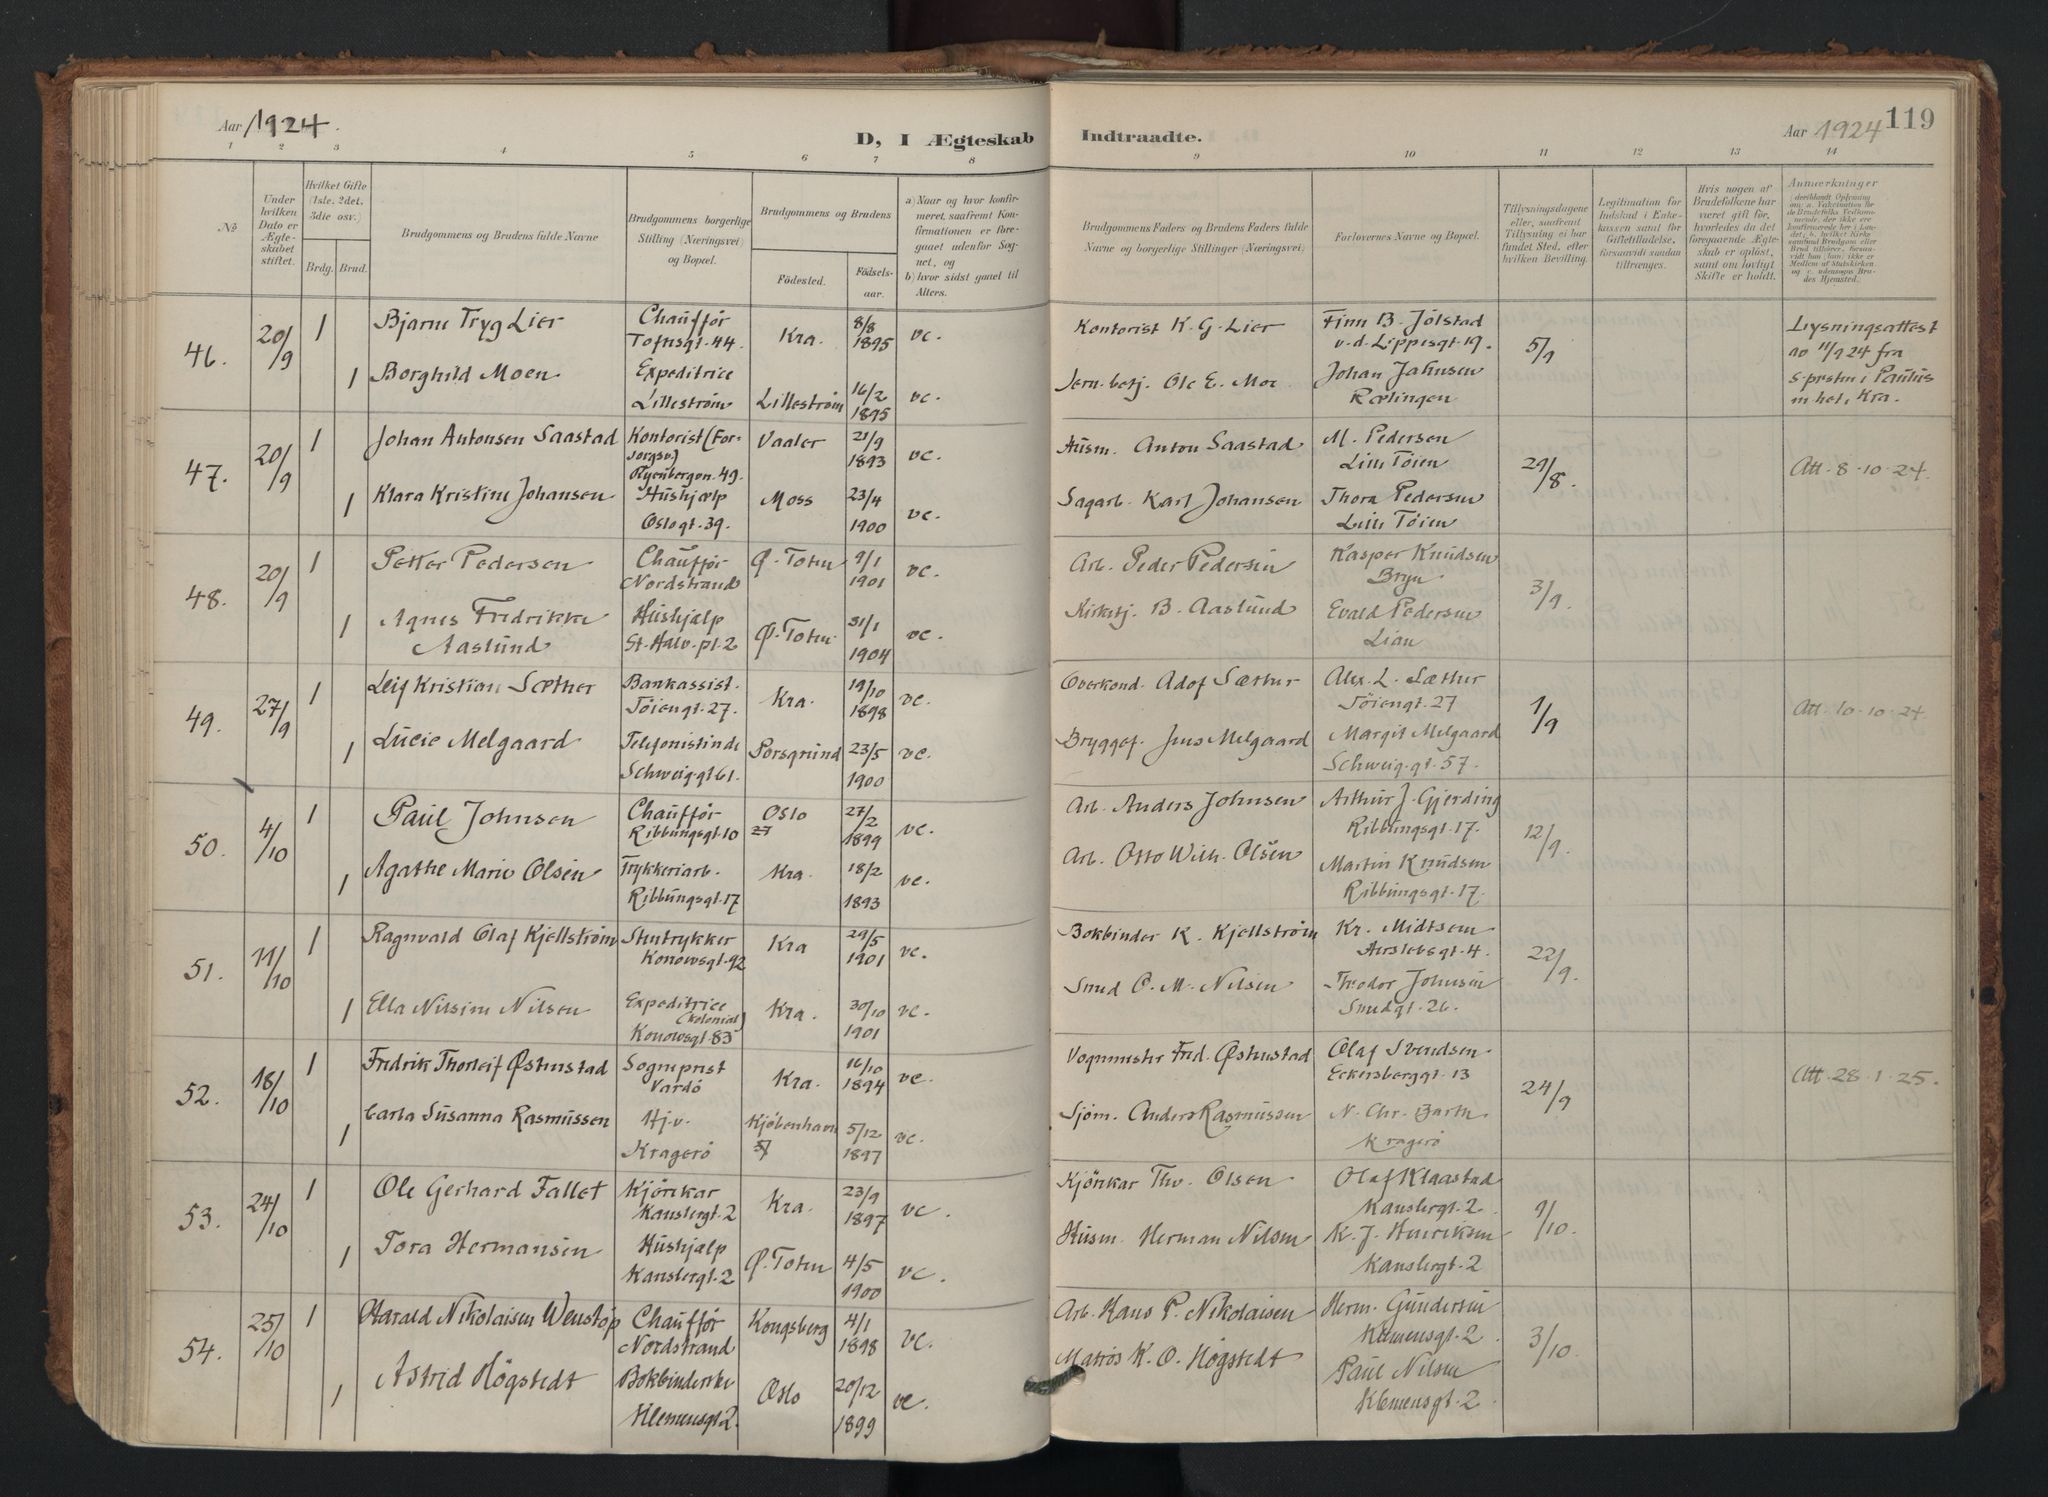 Aar 1924.
D, I Ægteskab Indtraadte.
Aar 1924 119
1 2 3 4 5 6 7 8 9 10 11 12 13 14
No
Under hvilken Dato er Ægteskabet stiftet.
Hvilket Gifte (1ste, 2det, 3die osv.)
Brdg. Brud.
Brudgommens og Brudens fulde Navne
Brudgommens borgerlige Stilling (Næringsvei) og Bopæl.
Brudgommens og Brudens
Fødested. Fødselsaar.
a) Naar og hvor konfirmeret, saafremt Konfirmationen er foregaaet udenfor Sognet, og
b) hvor sidst gaaet til Alters.
Brudgommens Faders og Brudens Faders fulde Navne og borgerlige Stillinger (Næringsvei).
Forlovernes Navne og Bopæl.
Tillysningsdagene eller, saafremt Tillysning ei har fundet Sted, efter hvilken Bevilling.
Legitimation for Indskud i Enkekassen samt for Giftetilladelse, forsaavidt saadan tiltrænges.
Hvis nogen af Brudefolkene har været gift før, hvorledes da det foregaaende Ægteskab er opløst, samt om lovligt Skifte er holdt.
Anmærkninger
46. 20/9 1 Bjarne Tryg Lier Chauffør Kra. 8/8 1895 vc. Kontorist K. G. Lier Finn B. Jølstad 5/9 Lysningsattest
Tofnsgt. 44. v. d. Lippesgt. 19. av 11/9 24 fra
1 Borghild Moen Expeditrice Lillestrøm 16/2 1895 vc. Jern.betj. Ole E. Moe Johan Jahnsen s.prstn i Paulus
Lillestrøm Rælingen m het, Kra.
47. 20/9 1 Johan Antonsen Saastad Kontorist (Forsorgsv.) Vaaler 21/9 1893 vc. Husm. Anton Saastad M. Pedersen 29/8 Att. 8-10-24.
Ryenbergvn. 49. Lille Tøien
1 Klara Kristine Johansen Hushjælp Moss 23/4 1900 vc. Sagarb. Karl Johansen Thora Pedersen
Oslogt. 39. Lille Tøien
48. 20/9 1 Petter Pedersen Chauffør Ø. Toten 9/1 1901 vc. Arb. Peder Pedersen Kasper Knudsen 3/9.
Nordstrand Bryn
1 Agnes Fredrikke Hushjælp Ø. Toten 31/1 1904 vc. Kirketj. B. Aaslund Evald Pedersen
Aaslund St. Halv. pl. 2 Lian
49. 27/9 1 Leif Kristian Sæther Bankassist. Kra. 19/10 1898 vc. Overkond. Adof Sæther Alex. L. Sæther 1/9 Att. 10-10-24.
Tøiengt. 27. Tøiengt. 27
1 Lucie Melgaard Telefonistinde Porsgrund 23/5 1900 vc. Bryggef. Jens Melgaard Margit Melgaard
Schweig.gt 61. Schweig.gt. 57.
50. 4/10 1 Paul Johnsen Chauffør Oslo 27/2 1899 vc. Arb. Anders Johnsen Arthur J. Gjerding 12/9.
Ribbungsgt. 10 27 Ribbungsgt. 17.
1 Agathe Marie Olsen Trykkeriarb. Kra. 18/2 1893 vc. Arb. Otto Wilh. Olsen Martin Knudsen
Ribbungsgt. 17 Ribbungsgt. 17.
51. 11/10 1 Ragnvald Olaf Kjellstrøm Stentrykker Kra 29/5 1901 vc. Bokbinder K. Kjellstrøm Kr. Midtsem 22/9.
Konowsgt. 92
1 Ella Nilsine Nilsen Expeditrice (kolonial) Kra. 30/10 1901 vc. Smed O. M. Nilsen Theodor Johnsen
Konowsgt. 83 Smedgt. 26.
52. 18/10 1 Fredrik Thorleif Østenstad Sogneprest Kra. 16/10 1894 vc. Vognmester Fred. Østenstad Olaf Svendsen 24/9 Att. 28-1-25.
Vardø Eckersberggt. 13
1 Carla Susanna Rasmussen Hj.v. Kjøbenhavn 5/12 1897 vc. Sjøm. Anders Rasmussen N. Chr. Barth
Kragerø Kragerø
53. 24/10 1 Ole Gerhard Fallet Kjørekar Kra. 23/9 1897 vc. Kjørekar Thv. Olsen Olaf Klaastad 9/10.
Kanslergt. 2 Kanslergt. 2
1 Tora Hermansen Hushjælp Ø. Toten 4/5 1900 vc. Husm. Herman Nilsen K. J. Henriksen
Kanslergt. 2 Kanslergt. 2
54. 25/10 1 Harald Nikolaisen Wenstøp Chauffør Kongsberg 4/1 1898 vc. Arb. Hans P. Nikolaisen Herm. Gundersen 3/10.
Nordstrand Klemensgt. 2
1 Astrid Høgstedt Bokbinderske Oslo 20/12 1899 vc. Matros K. O. Høgstedt Paul Nilsen
Klemensgt 2. Klemensgt. 2